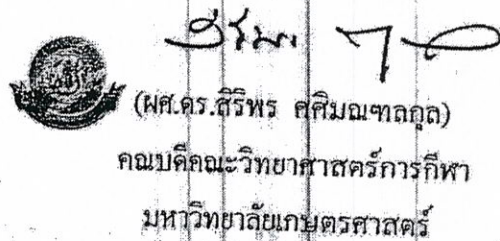 (ผศ.ดร.สิริพร ศศิมณฑลกุล)
คณบดีคณะวิทยาศาสตร์การกีฬา
มหาวิทยาลัยเกษตรศาสตร์